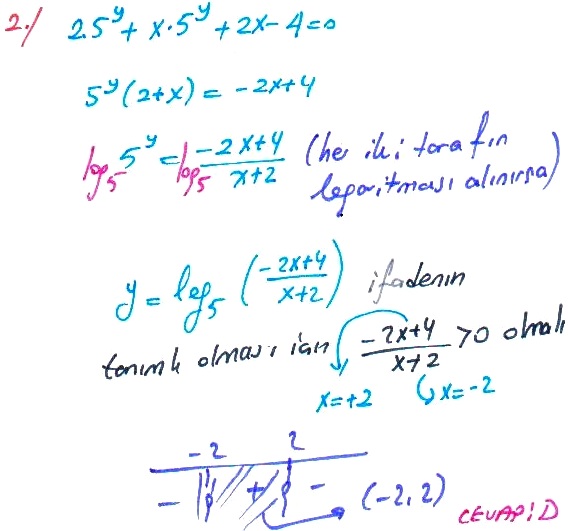 2./ 2.5^y + x.5^y + 2x - 4 = 0
5^y (2+x) = -2x+4
log₅ 5^y = log₅ (-2x+4)/(x+2) (her iki tarafın
logaritması alınırsa)
y = log₅ ((-2x+4)/(x+2)) ifadenin
tanımlı olması için (-2x+4)/(x+2) >0 olmalı
x=+2 x=-2
-2 2
- + - (-2,2)
CEVAP: D